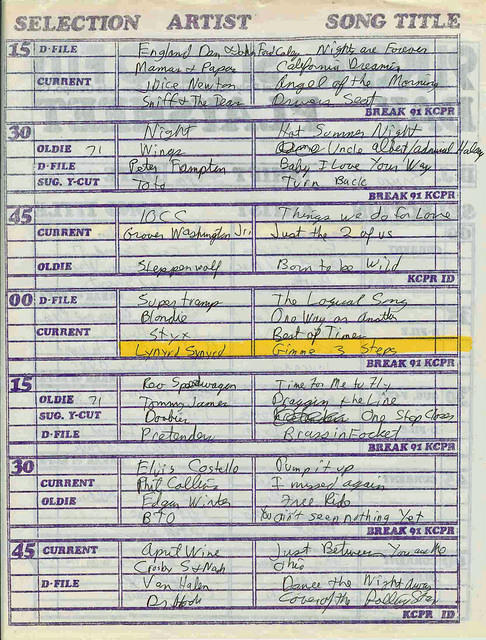 SELECTION ARTIST SONG TITLE
15 D-FILE England Dan & John Ford Coley Nights are Forever
Mamas & Papas California Dreamin
CURRENT Juice Newton Angel of the Morning
Sniff & The Tears Drivers Seat
BREAK 91 KCPR
30 Night Hot Summer Night
OLDIE 71 Wings Uncle Albert/admiral Halsey
D-FILE Peter Frampton Baby I Love Your Way
SUG. Y-CUT Toto Turn Back
BREAK 91 KCPR
45 10CC Things we do for Love
CURRENT Grover Washington Jr. Just the 2 of us
OLDIE Steppenwolf Born to be Wild
KCPR ID
00 D-FILE Supertramp The Logical Song
Blondie One Way or Another
CURRENT Styx Best of Times
Lynyrd Synyrd Gimme 3 Steps
BREAK 91 KCPR
15 Reo Speedwagon Time For Me to Fly
OLDIE 71 Tommy James Draggin the Line
SUG. Y-CUT Doobies One Step Closer
D-FILE Pretenders Brass in Pocket
BREAK 91 KCPR
30 Elvis Costello Pump it up
CURRENT Phil Collins I missed again
OLDIE Edgar Winter Free Ride
BTO You ain't seen nothing Yet
BREAK 91 KCPR
45 CURRENT April Wine Just Between You and Me
Crosby S & Nash Ohio
D-FILE Van Halen Dance the Night Away
Dr Hook Cover of the Rolling Stone
KCPR ID